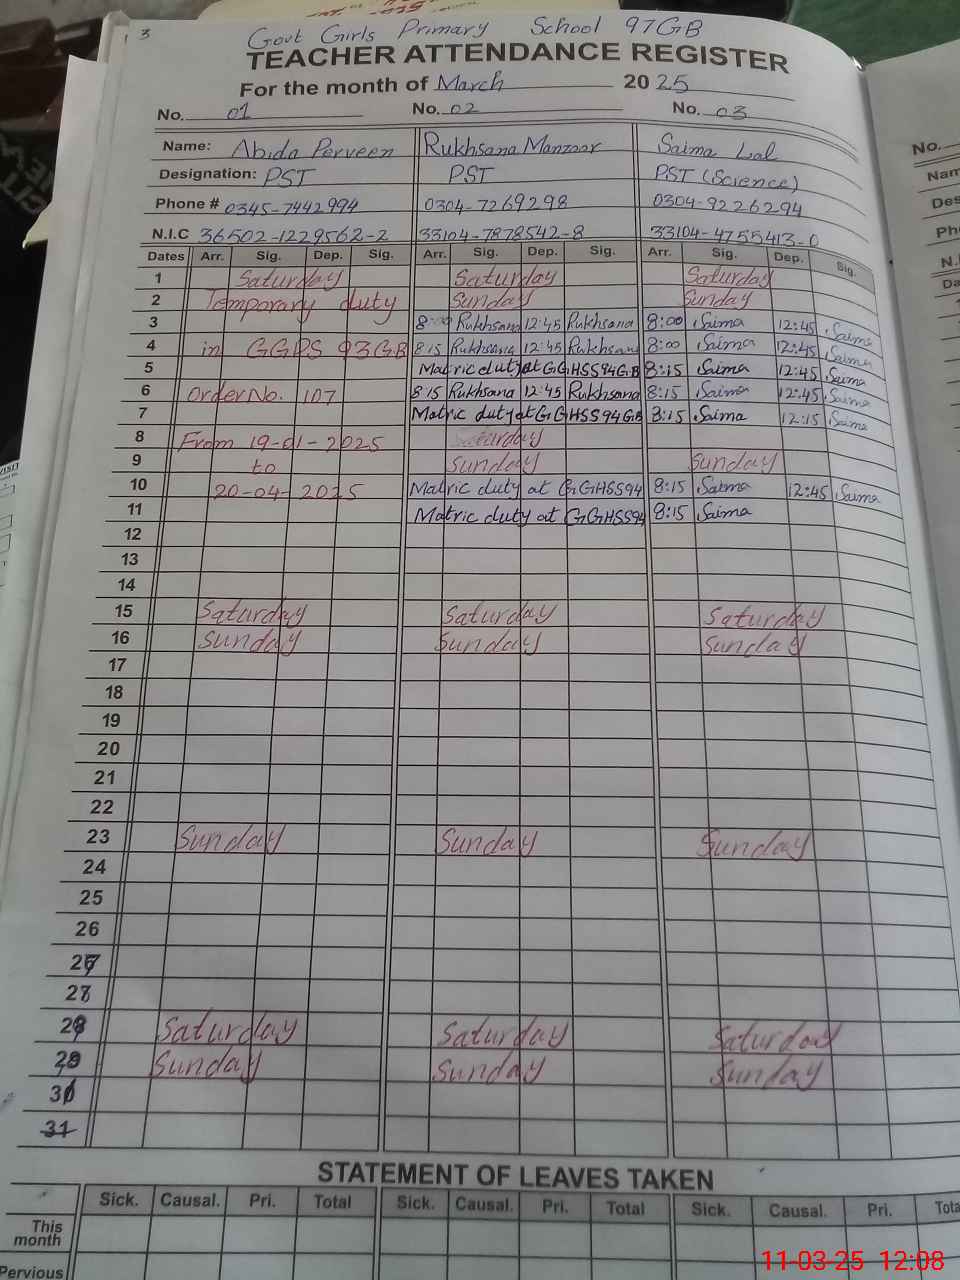 3
Govt Girls Primary School 97GB
TEACHER ATTENDANCE REGISTER
For the month of March 2025
No. 01 No. 02 No. 03
Name: Abida Perveen Rukhsana Manzoor Saima Lal
Designation: PST PST PST (Science)
Phone # 0345-7442994 0304-7269298 0304-9226294
N.I.C 36502-1229562-2 33104-7878542-8 33104-4755413-0
Dates Arr. Sig. Dep. Sig. Arr. Sig. Dep. Sig. Arr. Sig. Dep. Sig.
1 Saturday Saturday Saturday
2 Temporary duty Sunday Sunday
3 8:00 Rukhsana 12:45 Rukhsana 8:00 Saima 12:45 Saima
4 in GGPS 93GB 8:15 Rukhsana 12:45 Rukhsana 8:00 Saima 12:45 Saima
5 Matric duty at GGHSS94GB 8:15 Saima 12:45 Saima
6 Order No. 107 8:15 Rukhsana 12:45 Rukhsana 8:15 Saima 12:45 Saima
7 Matric duty at GGHSS94GB 8:15 Saima 12:15 Saima
8 From 19-01-2025 Saturday
9 to Sunday Sunday
10 20-04-2025 Matric duty at GGHSS94 8:15 Saima 12:45 Saima
11 Matric duty at GGHSS94 8:15 Saima
12
13
14
15 Saturday Saturday Saturday
16 Sunday Sunday Sunday
17
18
19
20
21
22
23 Sunday Sunday Sunday
24
25
26
27
28
29 Saturday Saturday Saturday
Sunday Sunday Sunday
31
STATEMENT OF LEAVES TAKEN
Sick. Causal. Pri. Total Sick. Causal. Pri. Total Sick. Causal. Pri. Total
This month
Pervious
No.
Nam
Des
Pho
N.I.
Da
11-03-25 12:08